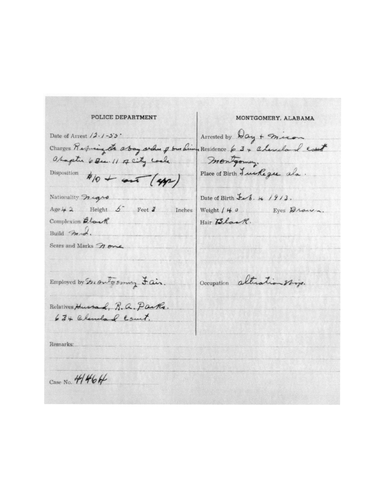 POLICE DEPARTMENT
MONTGOMERY, ALABAMA
Date of Arrest 12-1-55
Arrested by Day &
Charges order of bus
Residence 634 Cleveland Court
Chapter 6 Sec 11 City Code
Montgomery
Disposition $10 & cost (app)
Place of Birth Tuskegee Ala.
Nationality Negro
Date of Birth Feb. 4 1913.
Age 42 Height 5 Feet 3 Inches
Weight 140 Eyes Brown
Complexion Black
Hair Black
Build
Scars and Marks None
Employed by Montgomery Fair.
Occupation
Relatives Husband. R.A. Parks.
634 Cleveland Court.
Remarks:
Case No. 41464